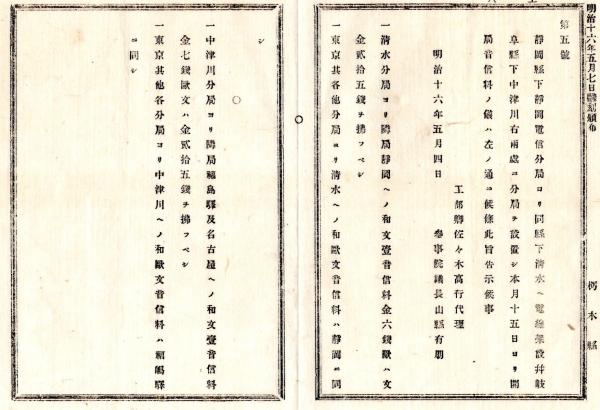 明治十六年五月七日飜刻頒布
栃木縣
第五號
靜岡縣下靜岡電信分局ヨリ同縣下淸水ヘ電線架設幷岐
阜縣下中津川右兩處ニ分局ヲ設置シ本月十五日ヨリ開
局音信料ノ儀ハ左ノ通ニ候條此旨告示候事
明治十六年五月四日
工部卿佐々木高行代理
參事院議長山縣有朋
一淸水分局ヨリ隣局靜岡ヘノ和文壹音信料金六錢歐ハ文
金貳拾五錢ヲ拂フベシ
一東京其各他分局ヨリ淸水ヘノ和歐文音信料ハ靜岡ニ同
シ
一中津川分局ヨリ隣局福島驛及名古屋ヘノ和文壹音信料
金七錢歐文ハ金貳拾五錢ヲ拂フベシ
一東京其他各分局ヨリ中津川ヘノ和歐文音信料ハ福嶋驛
ニ同シ